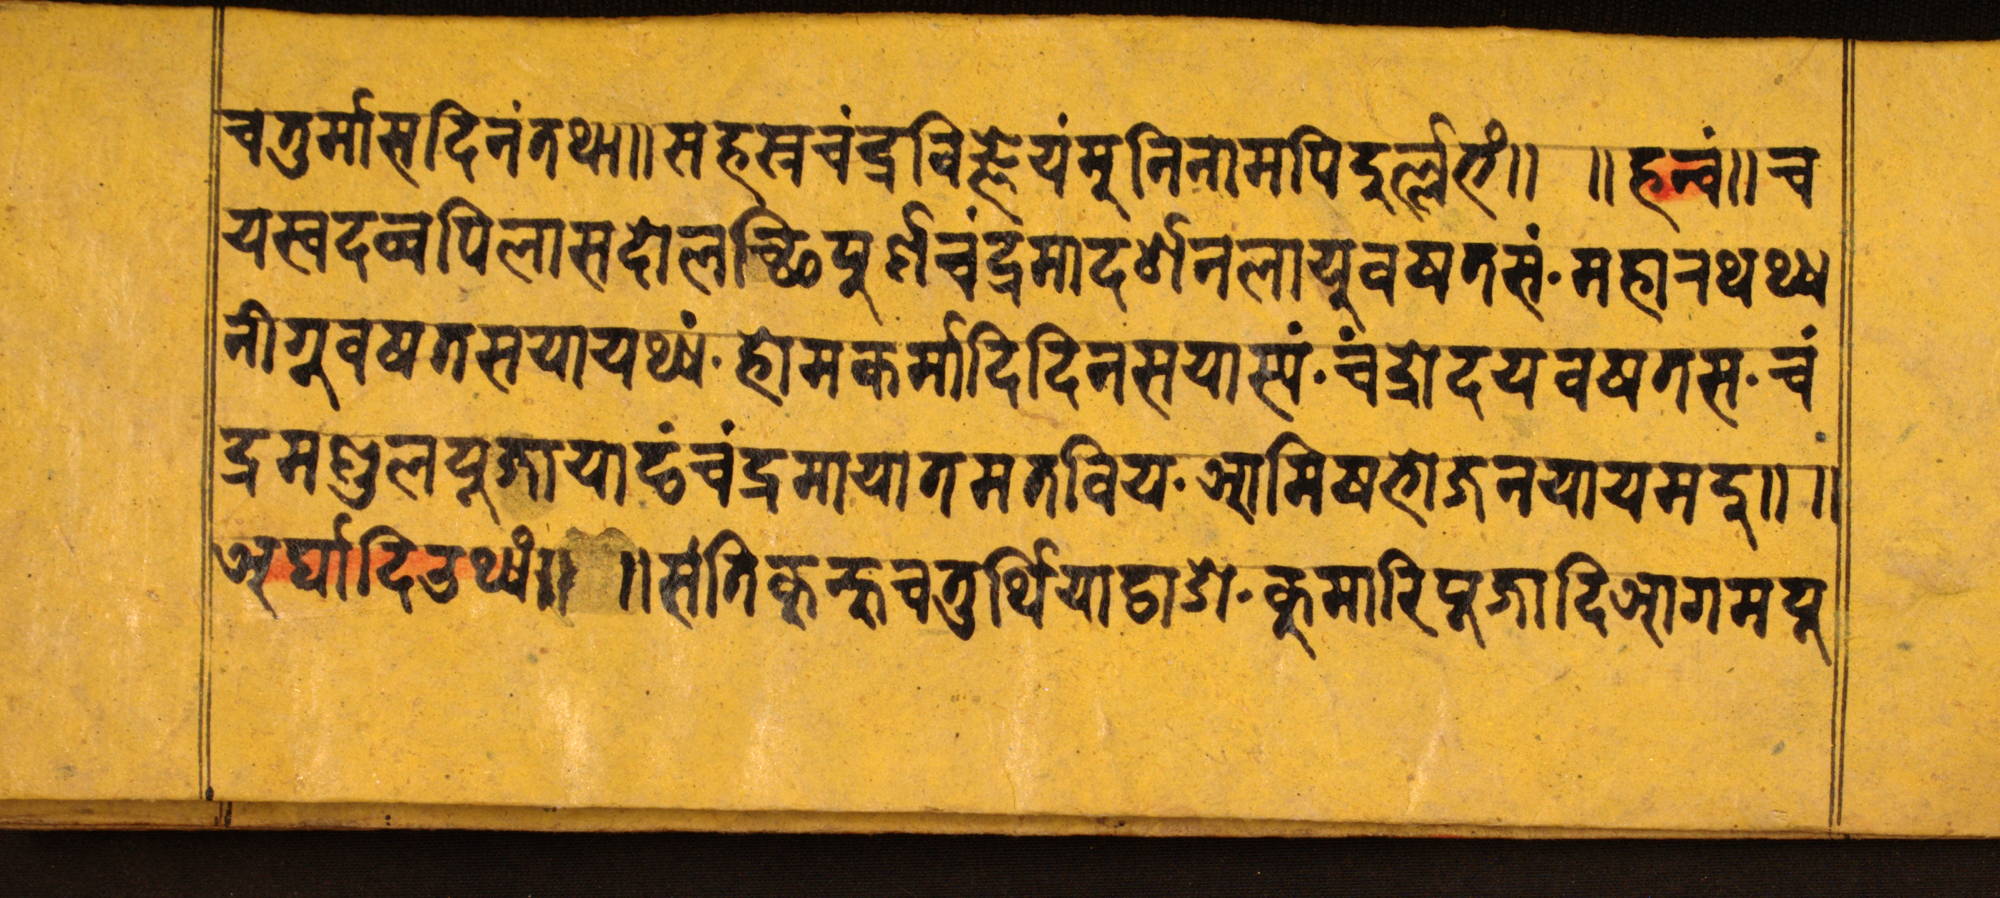 चतुर्मासदिनंतथा॥सहस्रचंद्रविज्ञेयंमूनिनामपिदुर्ल्लभं॥ ॥हन्वं॥च
यस्वदव्वपिलासदोलच्छिपूर्णचंद्रमादर्शनलायूवषतसं·महारथथ्य
नीगूवषतसयायथ्यं·होमकर्मादिदिनसयास्यं·चंद्रोदयवषतस·चं
द्रमण्डुलपूजायाङंचंद्रमायातमतविय·आमिषभोजनयायमदू॥ ॥
अर्घादिउथ्यं॥ ॥संतिकून्हूचतुर्थियाद्वाशे·कूमारिपूजादिआगमपू